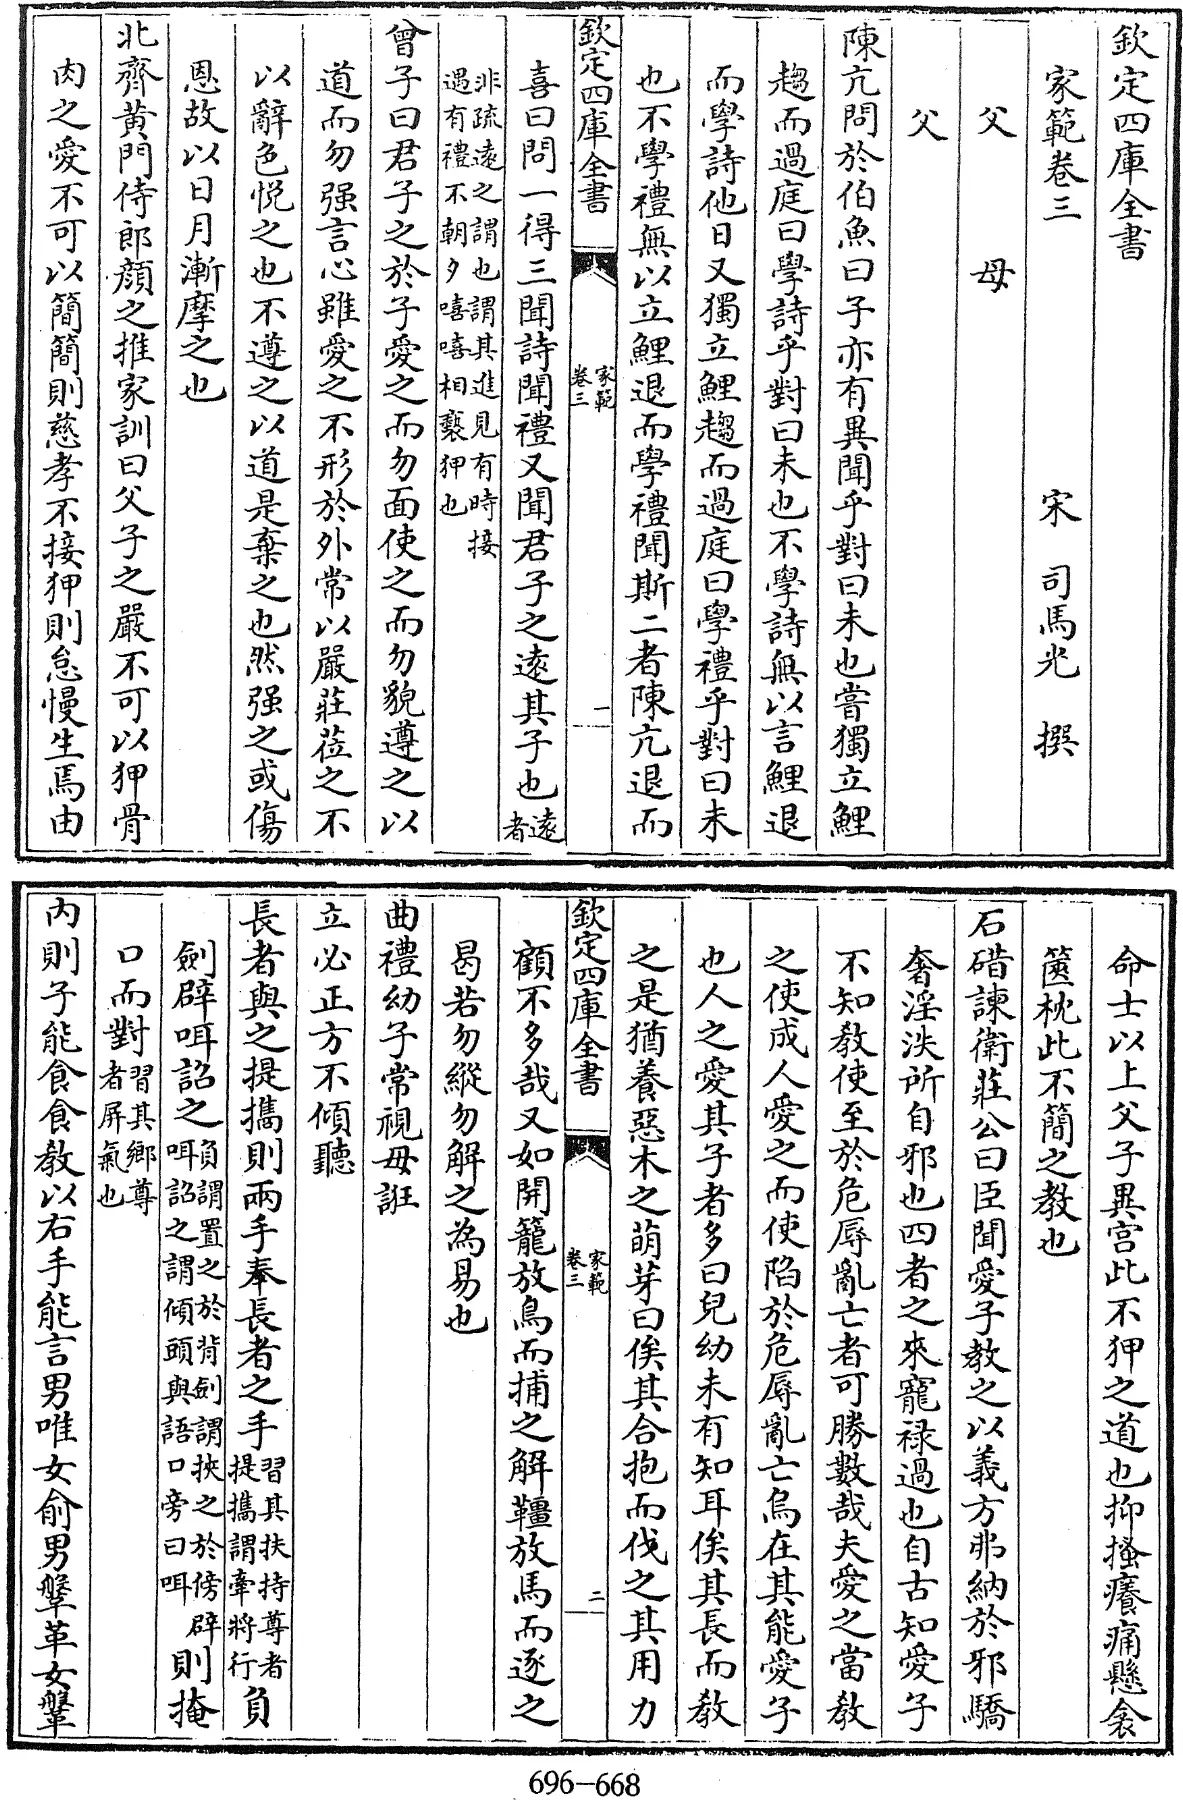 欽定四庫全書
家範卷三
宋 司馬光 撰
父 母
父
陳亢問於伯魚曰子亦有異聞乎對曰未也嘗獨立鯉
趨而過庭曰學詩乎對曰未也不學詩無以言鯉退
而學詩他日又獨立鯉趨而過庭曰學禮乎對曰未
也不學禮無以立鯉退而學禮聞斯二者陳亢退而
欽定四庫全書
家範
卷三
一
喜曰問一得三聞詩聞禮又聞君子之遠其子也遠者
非疏遠之謂也謂其進見有時接
遇有禮不朝夕嘻嘻相褻狎也
曾子曰君子之於子愛之而勿面使之而勿貌遵之以
道而勿强言心雖愛之不形於外常以嚴莊莅之不
以辭色悅之也不遵之以道是棄之也然强之或傷
恩故以日月漸摩之也
北齊黃門侍郎顏之推家訓曰父子之嚴不可以狎骨
肉之愛不可以簡簡則慈孝不接狎則怠慢生焉由
命士以上父子異宫此不狎之道也抑搔癢痛懸衾
篋枕此不簡之教也
石碏諫衛莊公曰臣聞愛子教之以義方弗納於邪驕
奢淫泆所自邪也四者之來寵禄過也自古知愛子
不知教使至於危辱亂亡者可勝數哉夫愛之當教
之使成人愛之而使陷於危辱亂亡烏在其能愛子
也人之愛其子者多曰兒幼未有知耳俟其長而教
之是猶養惡木之萌芽曰俟其合抱而伐之其用力
欽定四庫全書
家範
卷三
二
顧不多哉又如開籠放鳥而捕之解韁放馬而逐之
曷若勿縱勿解之為易也
曲禮幼子常視毋誑
立必正方不傾聽
長者與之提攜則兩手奉長者之手習其扶持尊者提攜謂牽將行負
劍辟咡詔之負謂置之於背劍謂挾之於傍辟咡詔之謂傾頭與語口旁曰咡則掩
口而對習其鄉尊者屏氣也
内則子能食食教以右手能言男唯女俞男鞶革女鞶
696-668